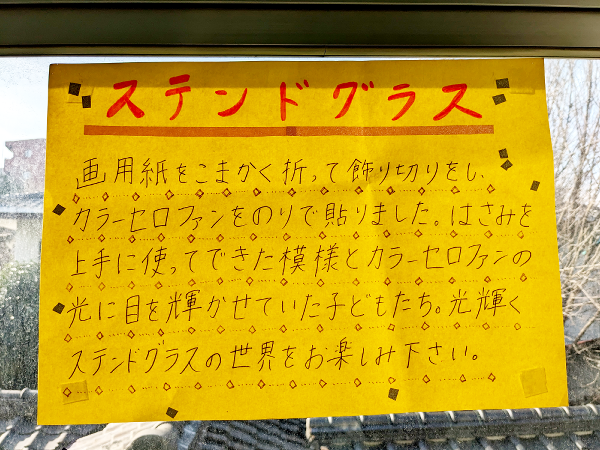 ステンドグラス
画用紙をこまかく折って飾り切りをし、
カラーセロファンをのりで貼りました。はさみを
上手に使ってできた模様とカラーセロファンの
光に目を輝かせていた子どもたち。光輝く
ステンドグラスの世界をお楽しみ下さい。